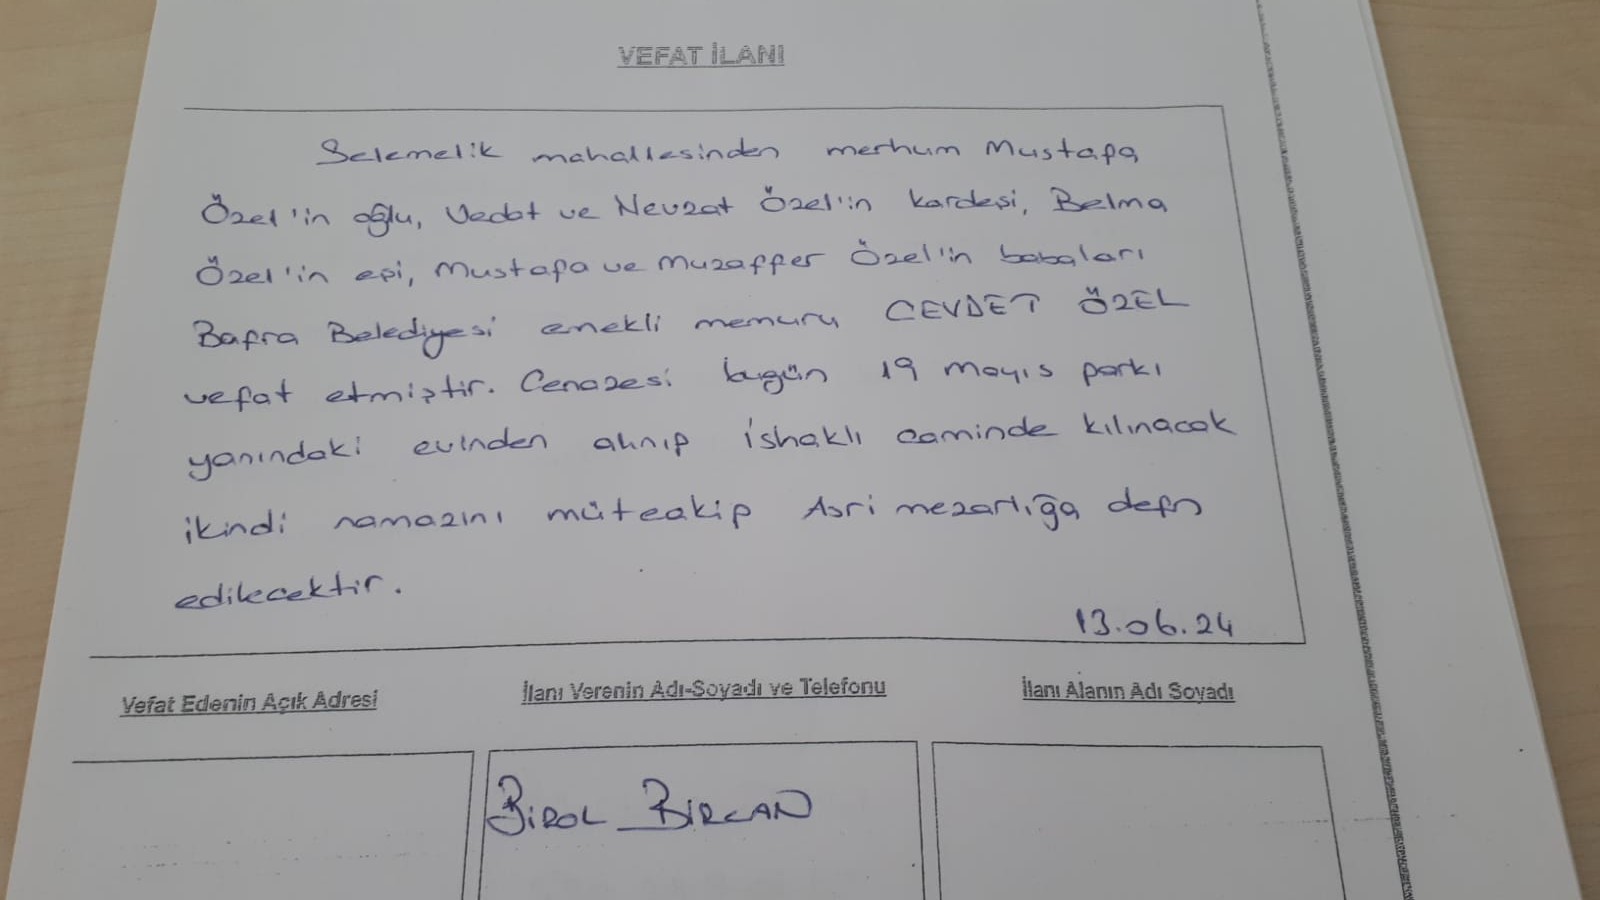 VEFAT İLANI
Selemelik mahallesinden merhum Mustafa
Özel'in oğlu, Vedat ve Nevzat Özel'in kardeşi, Belma
Özel'in eşi, Mustafa ve Muzaffer Özel'in babaları
Bafra Belediyesi emekli memuru CEVDET ÖZEL
vefat etmiştir. Cenazesi bugün 19 mayıs parkı
yanındaki evinden alınıp İshaklı caminde kılınacak
ikindi namazını müteakip Asri mezarlığa defn
edilecektir.
13.06.24
Vefat Edenin Açık Adresi
İlanı Verenin Adı-Soyadı ve Telefonu
İlanı Alanın Adı Soyadı
BİROL BİRCAN